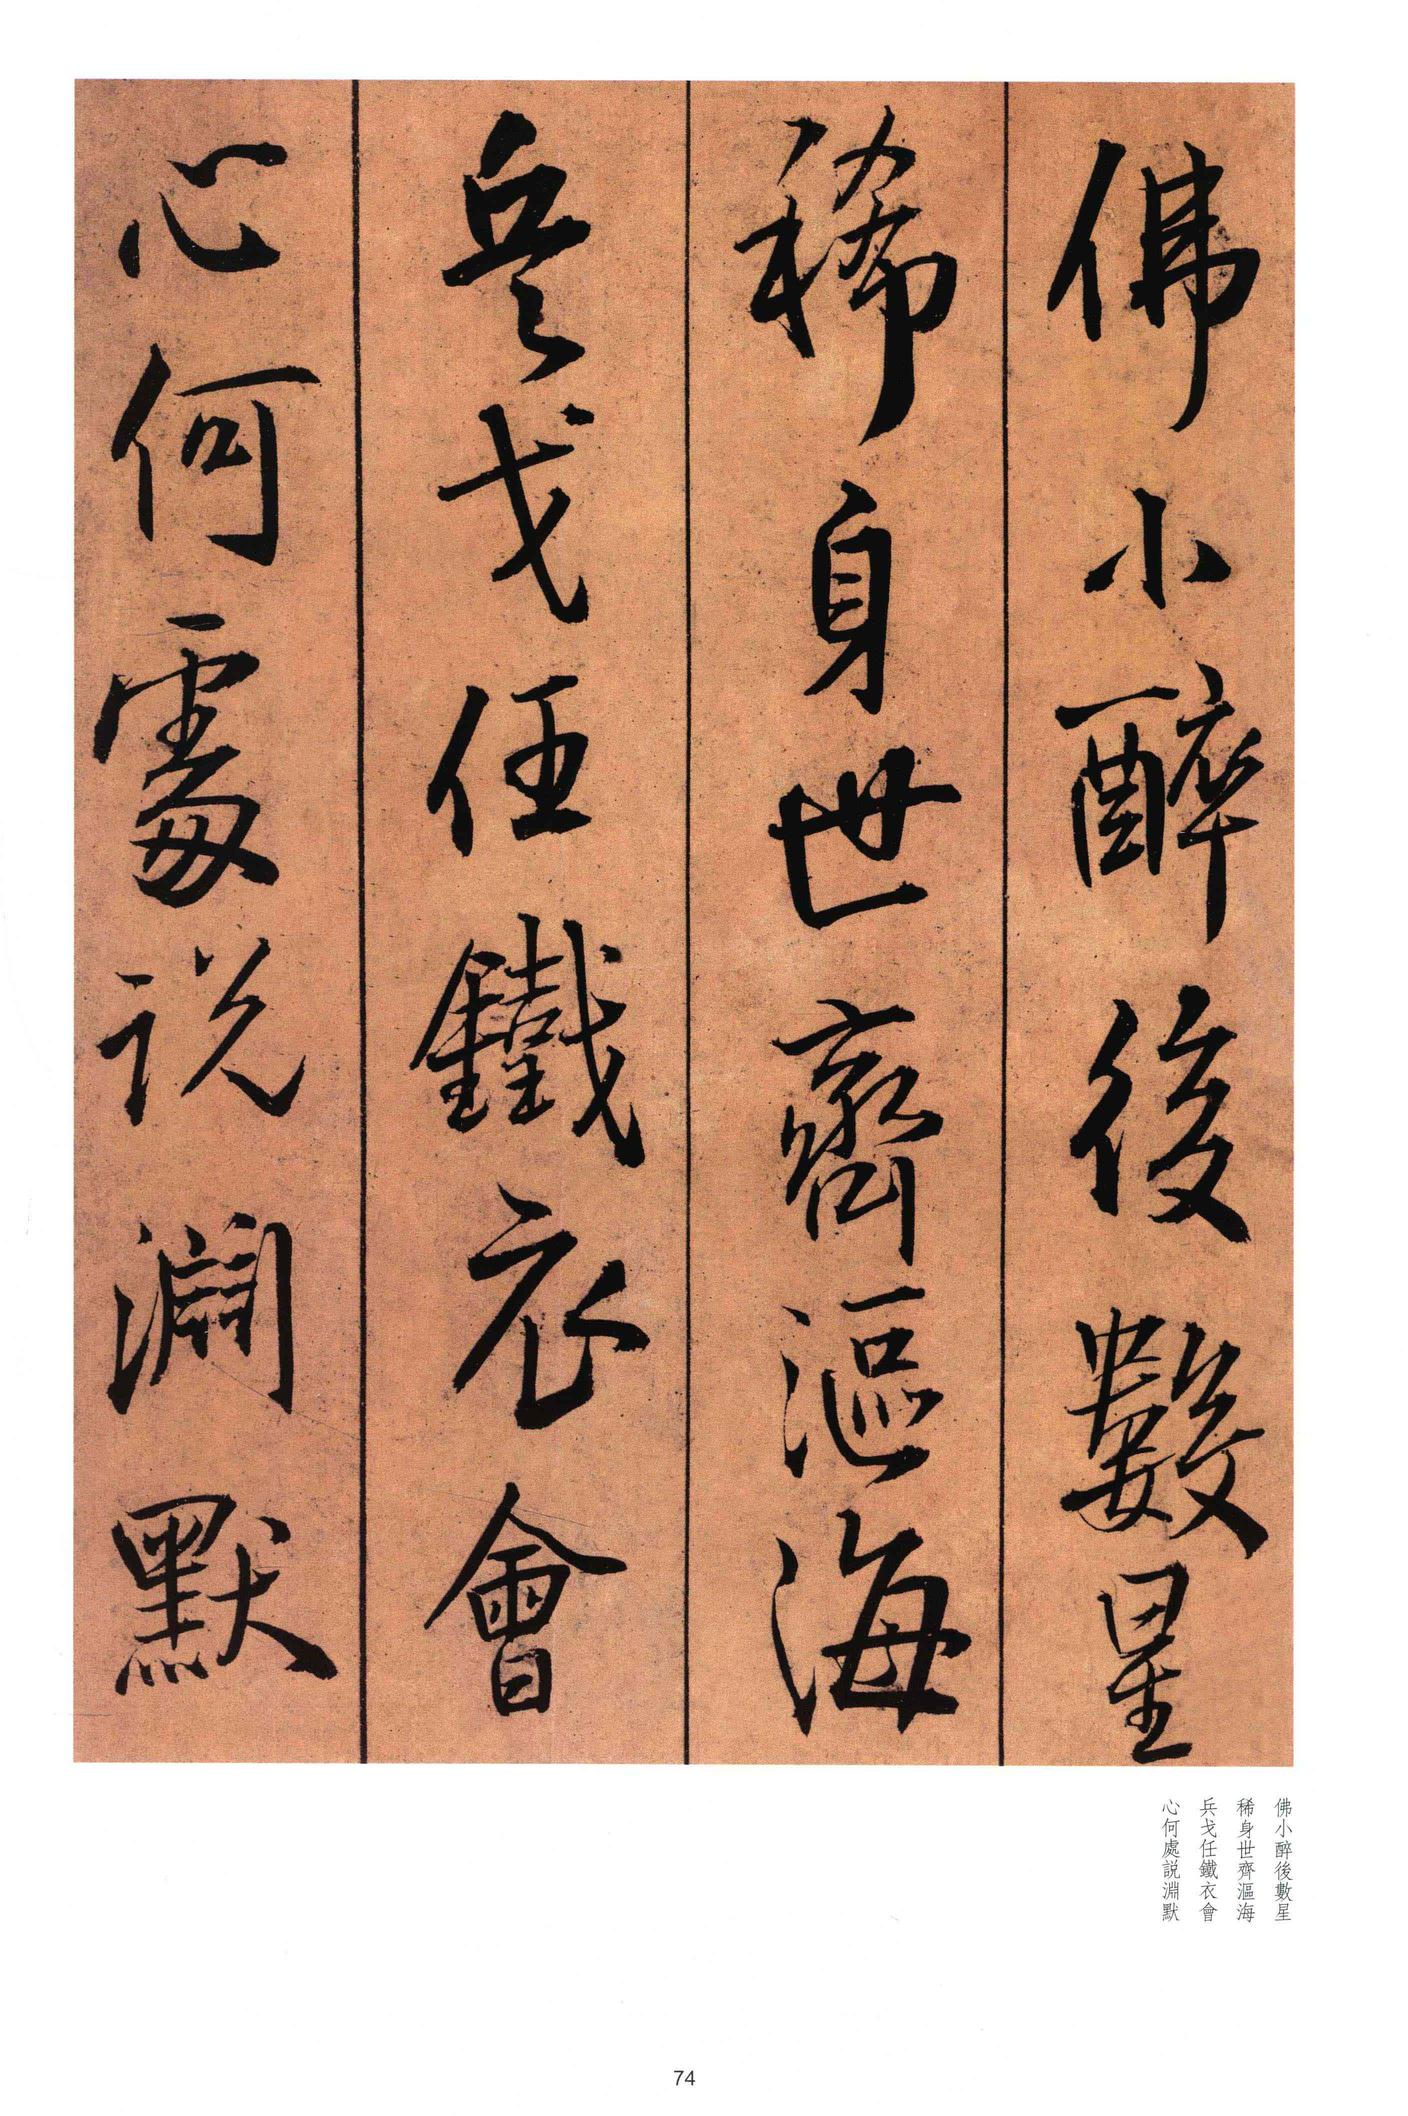 佛小醉後數星
稀身世齊漚海
兵戈任鐵衣會
心何處説淵默
佛小醉後數星
稀身世齊漚海
兵戈任鐵衣會
心何處説淵默
74